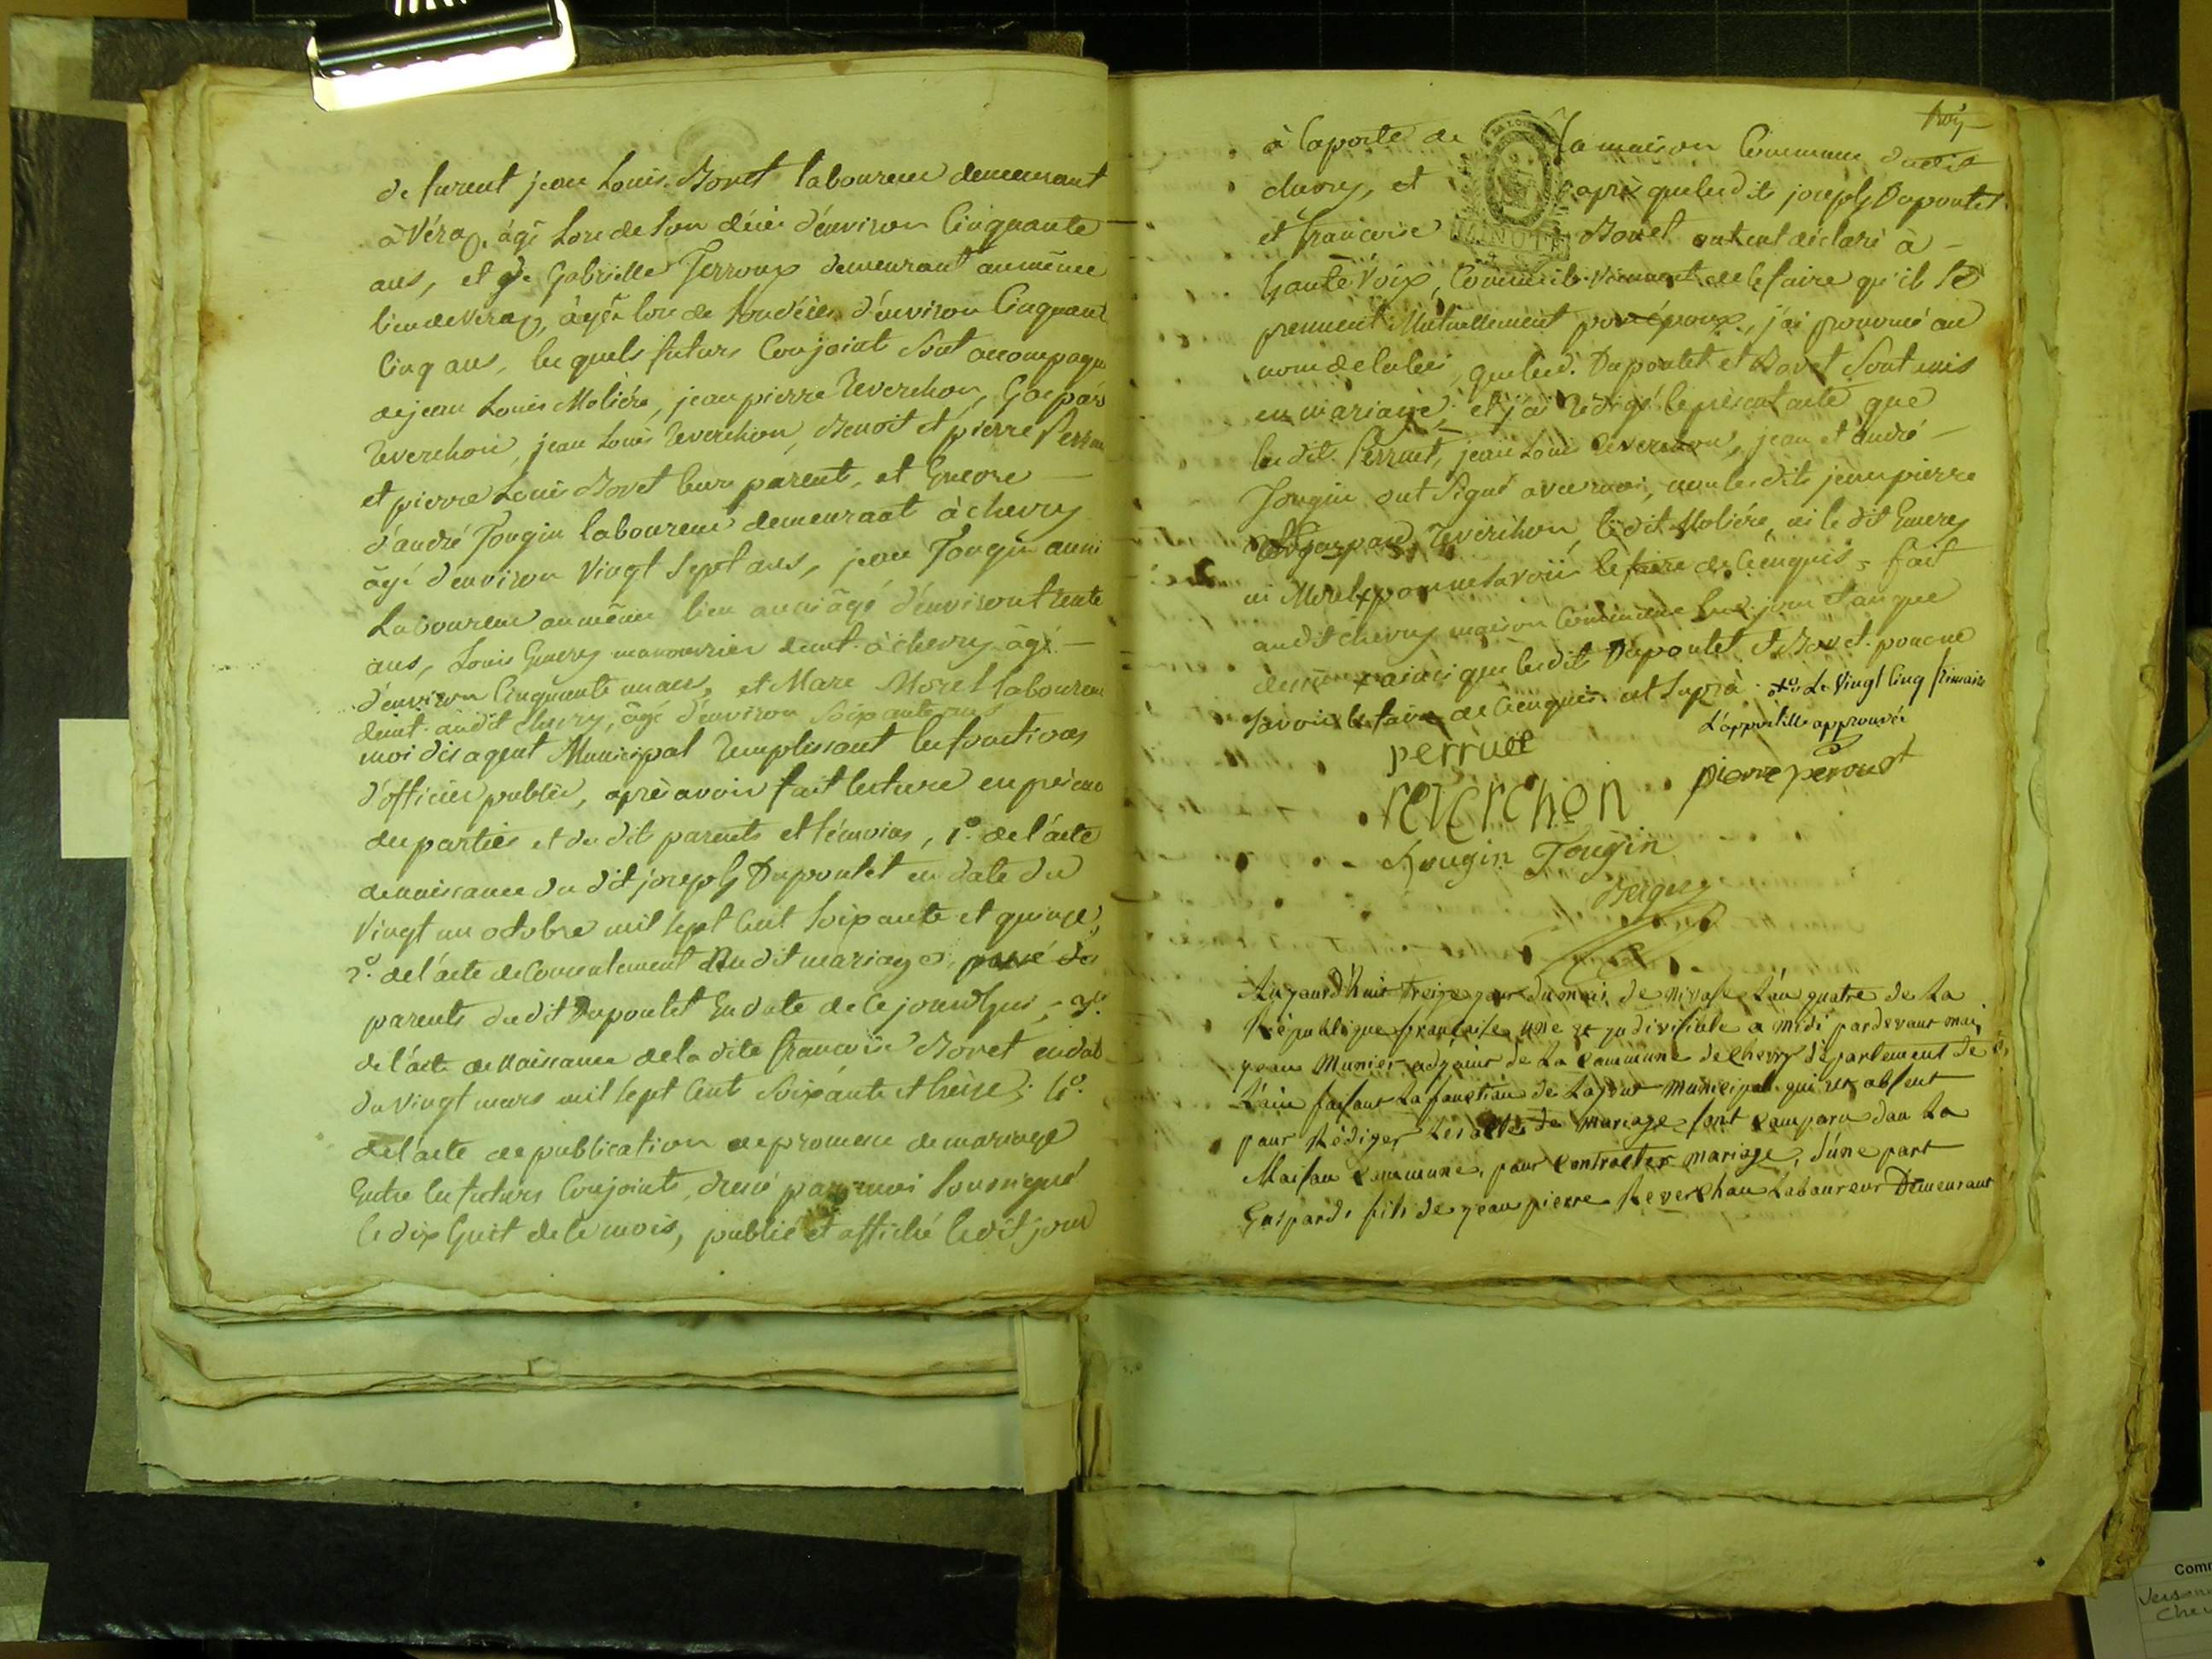 de furent jean Louis Bovet laboureur demeurant
à Véraz, âgé Lors de Son décès d'environ Cinquante
ans, et de Gabrielle Terroux demeurant au même
lieu de Veraz, âgée lors de Son décès d'environ Cinquante
Cinq ans, lesquels futurs Conjoint Sont accompagné
de jean Louis Moliére, jean pierre Reverchon, Gaspard
Reverchon, jean Louis Reverchon, Benoit et pierre Perr
et pierre Louis Bovet leurs parent, et Encore
d'andré Tougin laboureur demeuraat à chevry
âgé d'environ Vingt Sept ans, jean Tougin aussi
Laboureur au même lieu aussi âgé d'environ trente
ans, Louis Emery manouvrier demt. à chevry âgé
d'environ Cinquante un ans, et Marc Morel laboureur
demt. audit Chevry, âgé d'environ Soixante ans
moi dit agent Municipal Remplissant les fonctions
d'officier public, après avoir fait lecture en présence
des parties et desdits parents et témoins, 1º. de l'acte
de naissance du dit joseph Dupontet en date du
Vingt un octobre mil sept Cent Soixante et quinze,
2º. de l'acte de Consentement Audit mariage, passé des
parents dudit Dupontet En date de Ce jourd'hui, 3º.
de l'acte de Naissance de la dite francoise Bovet en dat
du Vingt mars mil sept Cent Soixante et treize; 4º.
de l'acte de publication de promesse de mariage
Entre les futurs Conjoints, dressé par moi Soussigné
le dix huit de Ce mois, publié et affiché ledit jour
à la porte de la maison Commune dudit
chevry, et après que lesdits joseph Dupontet
et francoise Bovet ont eut déclaré à
haute Voix, Comme ils Viennent de le faire qu'il Se
prennent Mutuellement pour époux, j'ai prononcé au
nom de la loi, que lesd. Dupontet et Bovet Sont unis
en mariage, et j'ai Rédigé le présent acte que
lesdit Perruet, jean Louis Reverchon, jean et andré
Tougin ont Signé avec moi, non lesdits jean pierre
gaspard Reverchon, ledit Moliére, ni le dit Emery
ni Morel pour ne Savoir le faire de Ce enquis, fait
audit chevry maison Commune Lesd. jour et an que
dessus ainsi que lesdit Dupontet et Bovet pour ne
Savoir le faire de Ce enquis. ut Suprà. Le Vingt Cinq frimaire
L'appostille approuvée
perruet
pierre perouet
reverchon
tougin Tougin
Aujourd'hui treize jour du mois de nivose L'an quatre de La
République française une et indivisible a midi pardevant moi
jean Munier adjoint de La Commune de Chevry département de
L'ain faisant La fonction de L'agent Municipal qui est absent
pour Rédiger Les actes de mariage sont Comparu dan La
Maison Commune, pour Contracter mariage, d'une part
Gaspard, fils de jean pierre Reverchon Laboureur Demeurant